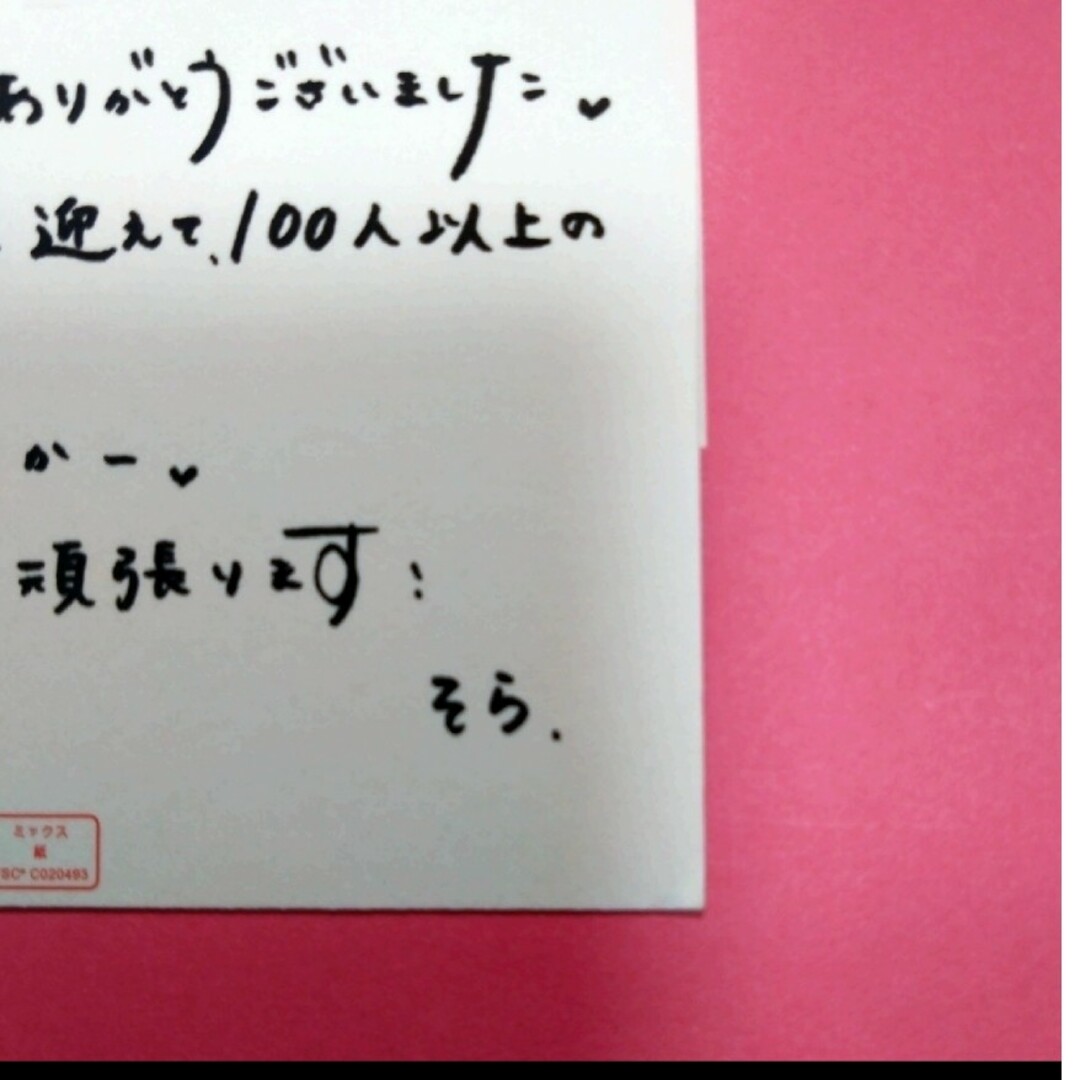 ありがとうございました♥
迎えて、100人以上の
かー♥
頑張ります!
そら.
ミックス
紙
FSC® C020493